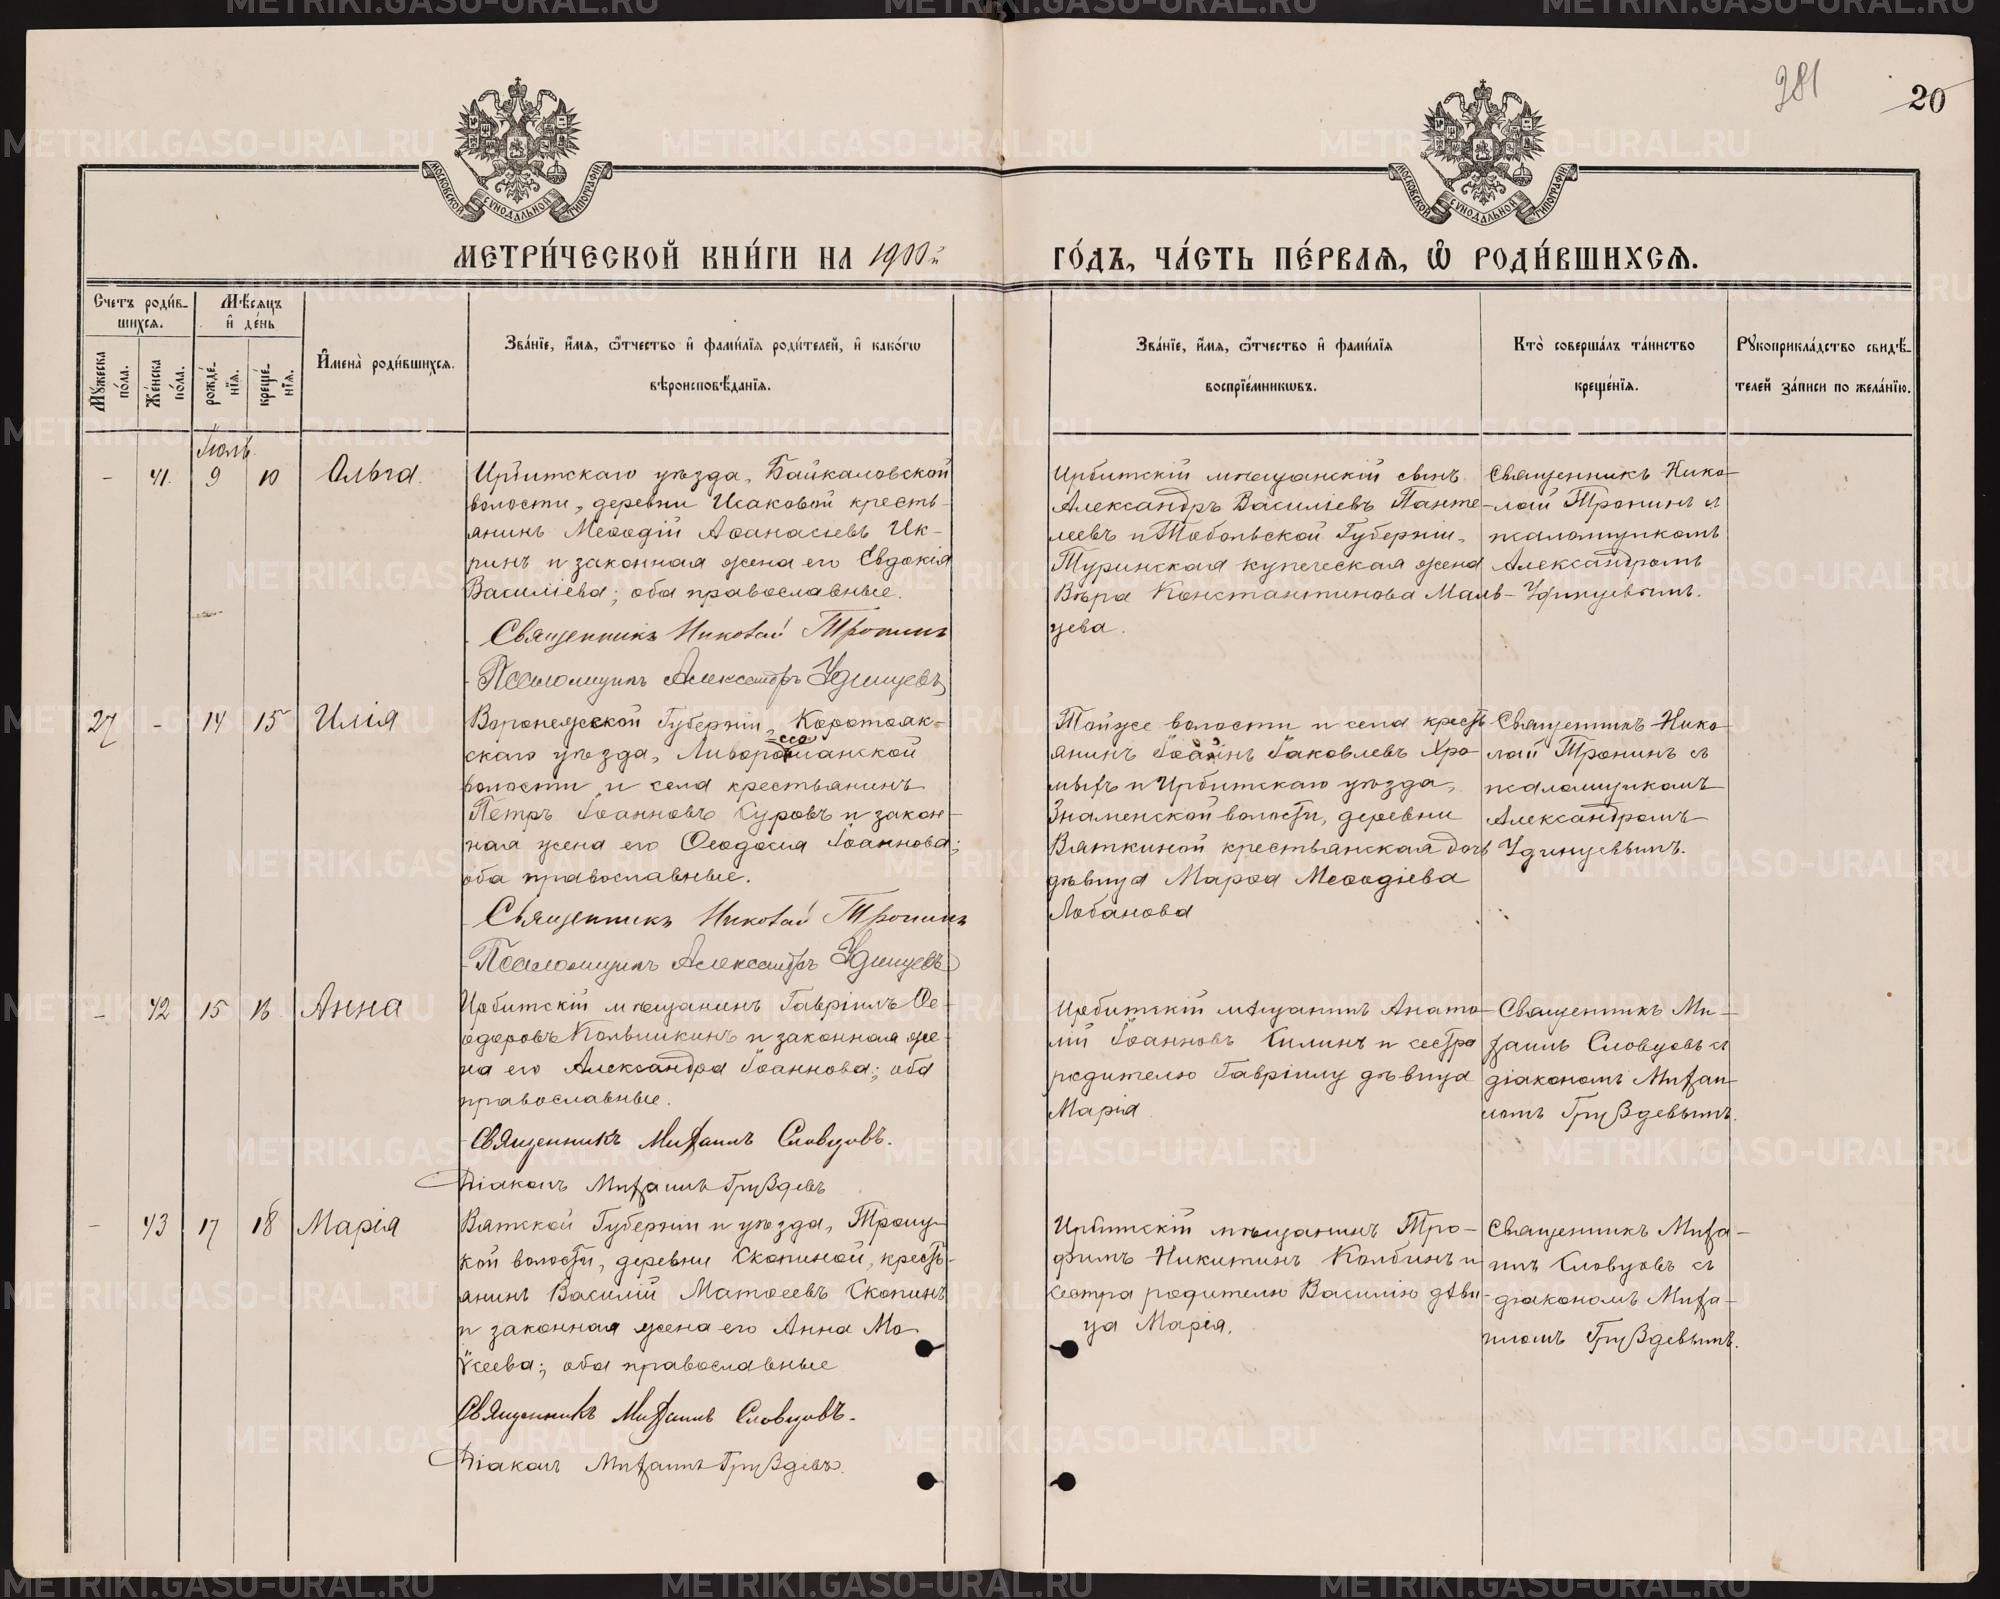 281
20
МЕТРИ́ЧЕСКОЙ КНИ́ГИ НА 1900й
ГО́ДЪ, ЧА́СТЬ ПЕ́РВАѦ, Ѡ РОДИ́ВШИХСѦ.
МОСКОВСКОЙ СѴНОДАЛЬНОЙ ТИПОГРАФІИ
МОСКОВСКОЙ СѴНОДАЛЬНОЙ ТИПОГРАФІИ
Счетъ роди́в-
шихсѧ.
Мꙋжеска по́ла.
Же́нска по́ла.
Мѣ́сѧцъ
и҆ де́нь
рожде́нїѧ.
креще́нїѧ.
И҆мена̀ роди́вшихсѧ.
Зва́нїе, и҆́мѧ, ѻ҆́тчество и҆ фами́лїѧ роди́телей, и҆ како́гѡ
вѣроисповѣ́данїѧ.
Зва́нїе, и҆́мѧ, ѻ҆́тчество и҆ фами́лїѧ
воспрїе́мникѡвъ.
Кто̀ соверша́лъ та́инство
креще́нїѧ.
Рꙋкоприкла́дство свидѣ́-
телей за́писи по жела́нїю.
Іюль.
- 41. 9 10 Ольга.
Ирбитскаго уѣзда, Байкаловской
волости, деревни Исаковой кресть-
янинъ Меѳодій Аѳанасіевъ Ик-
ринъ и законная жена его Евдокія
Василіева; оба православные.
Священникъ Николай Тронинъ
Псаломщикъ Александръ Удинцевъ
Ирбитскій мѣщанскій сынъ
Александръ Василіевъ Панте-
леевъ и Тобольской Губерніи,
Туринская купеческая жена
Вѣра Константинова Маль-
цева.
Священникъ Нико-
лай Тронинъ съ
псаломщикомъ
Александромъ
Удинцевымъ.
27 - 14 15 Илія
Воронежской Губерніи, Коротояк-
скаго уѣзда,
волости и села крестьянинъ
Петръ Іоанновъ Суровъ и закон-
ная жена его Ѳеодосія Іоаннова;
оба православные.
Священникъ Николай Тронинъ
Псаломщикъ Александръ Удинцевъ
Той же волости и села кресть
янинъ Іоаннъ Іаковлевъ Хро-
мыхъ и Ирбитскаго уѣзда,
Знаменской волости, деревни
Вяткиной крестьянская дочь
дѣвица Марѳа Меѳодіева
Лобанова
Священникъ Нико-
лай Тронинъ съ
псаломщикомъ
Александромъ
Удинцевымъ.
- 42 15 16 Анна
Ирбитскій мѣщанинъ Гавріилъ Ѳе-
одоровъ Колышкинъ и законная же-
на его Александра Іоаннова; оба
православные.
Священникъ Михаилъ Словцовъ.
Діаконъ Михаилъ Груздевъ
Ирбитскій мѣщанинъ Анато-
лій Іоанновъ Килинъ и сестра
родителю Гавріилу дѣвица
Марія
Священникъ Ми-
хаилъ Словцовъ съ
діакономъ Михаи
ломъ Груздевымъ.
- 43 17 18 Марія
Вятской Губерніи и уѣзда, Троиц-
кой волости, деревни Скопиной, кресть-
янинъ Василій Матѳеевъ Скопинъ
и законная жена его Анна Мо-
ѵсеева; оба православные
Священникъ Михаилъ Словцовъ.
Діаконъ Михаилъ Груздевъ.
Ирбитскій мѣщанинъ Тро-
фимъ Никитинъ Колбинъ и
сестра родителю Василію дѣви-
ца Марія.
Священникъ Миха-
илъ Словцовъ съ
діакономъ Миха-
иломъ Груздевымъ.
METRIKI.GASO-URAL.RU